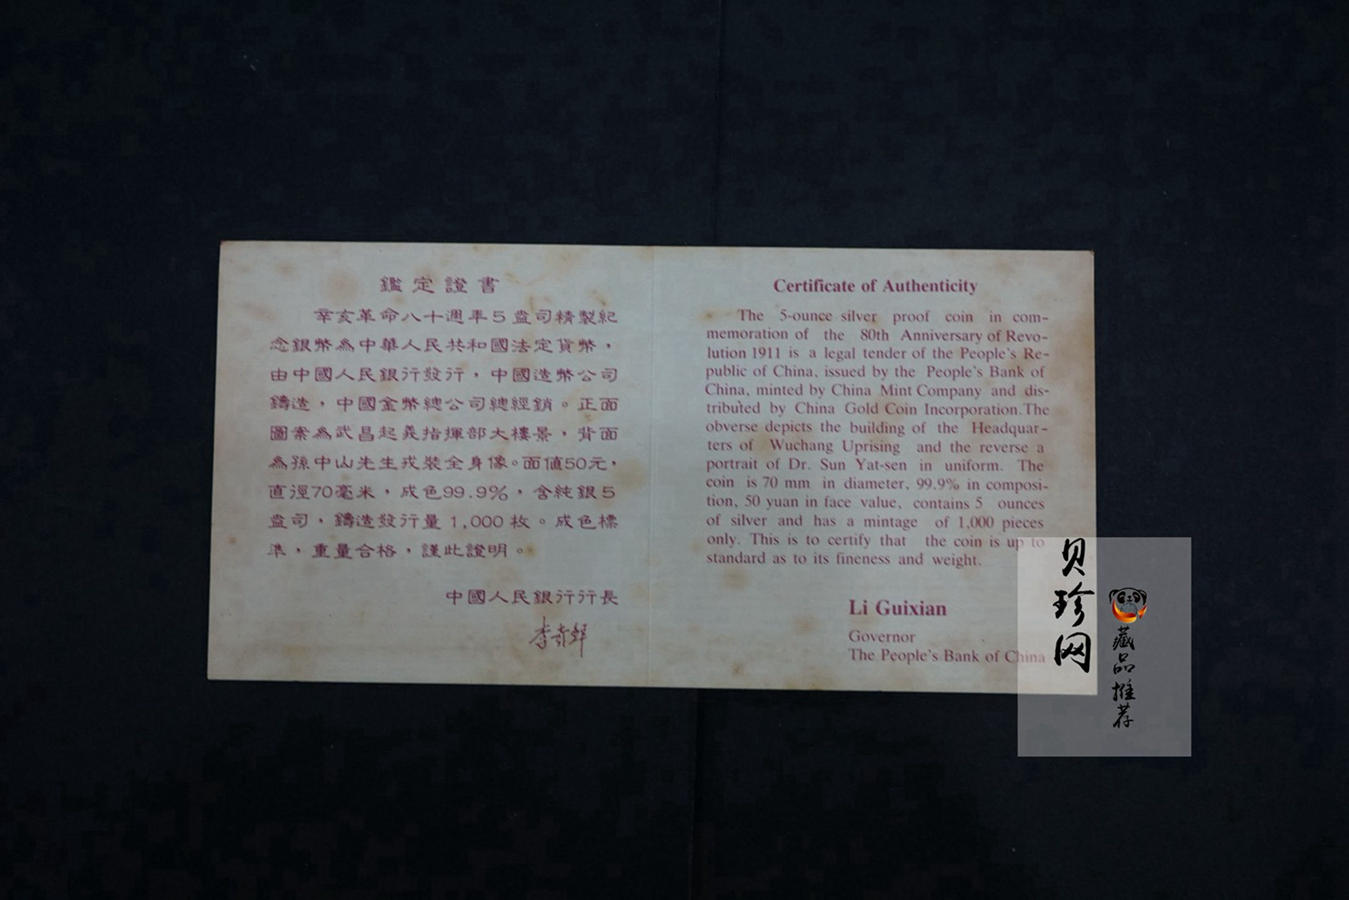 鑑定證書
辛亥革命八十週年5盎司精製紀
念銀幣為中華人民共和國法定貨幣，
由中國人民銀行發行，中國造幣公司
鑄造，中國金幣總公司總經銷。正面
圖案為武昌起義指揮部大樓景，背面
為孫中山先生戎裝全身像。面值50元，
直徑70毫米，成色99.9%，含純銀5
盎司，鑄造發行量1,000枚。成色標
準，重量合格，謹此證明。
中國人民銀行行長
李貴鮮
Certificate of Authenticity
The 5-ounce silver proof coin in com-
memoration of the 80th Anniversary of Revo-
lution 1911 is a legal tender of the People's Re-
public of China, issued by the People's Bank of
China, minted by China Mint Company and dis-
tributed by China Gold Coin Incorporation.The
obverse depicts the building of the Headquar-
ters of Wuchang Uprising and the reverse a
portrait of Dr. Sun Yat-sen in uniform. The
coin is 70 mm in diameter, 99.9% in composi-
tion, 50 yuan in face value, contains 5 ounces
of silver and has a mintage of 1,000 pieces
only. This is to certify that the coin is up to
standard as to its fineness and weight.
Li Guixian
Governor
The People's Bank of China
贝珍网
藏品推荐